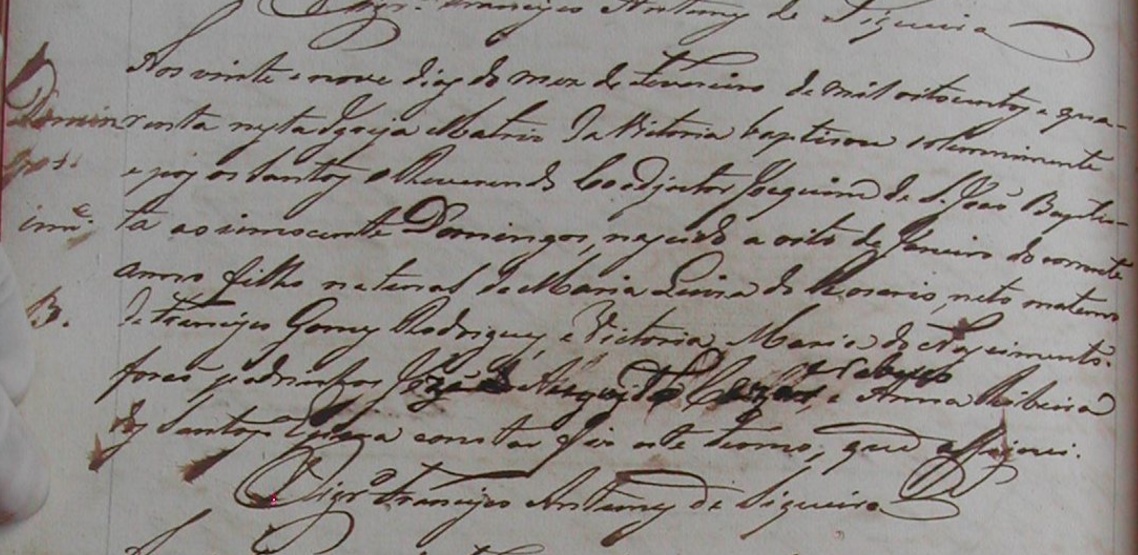 Vigr.º Francisco Antunes de Siqueira
Aos vinte e nove dias do mez de Fevereiro de mil oitocentos e qua-
Domin renta nesta Igreja Matriz da Victoria baptisou solemnimente
gos e poz os Santos o Reverendo Coadjutor Joaquim de S. João Baptis-
inn.e ta ao innocente Domingos, nascido a oito de Janeiro do corrente
anno filho natural de Maria Luisa do Rosario, neto materno
B. de Francisco Gomes Rodrigues, e Victoria Maria do Nascimento.
forão padrinhos José de e Anna Ribeira
dos Santos. E para constar fiz este termo, que assignei.
Vigr.º Francisco Antunes de Siqueira